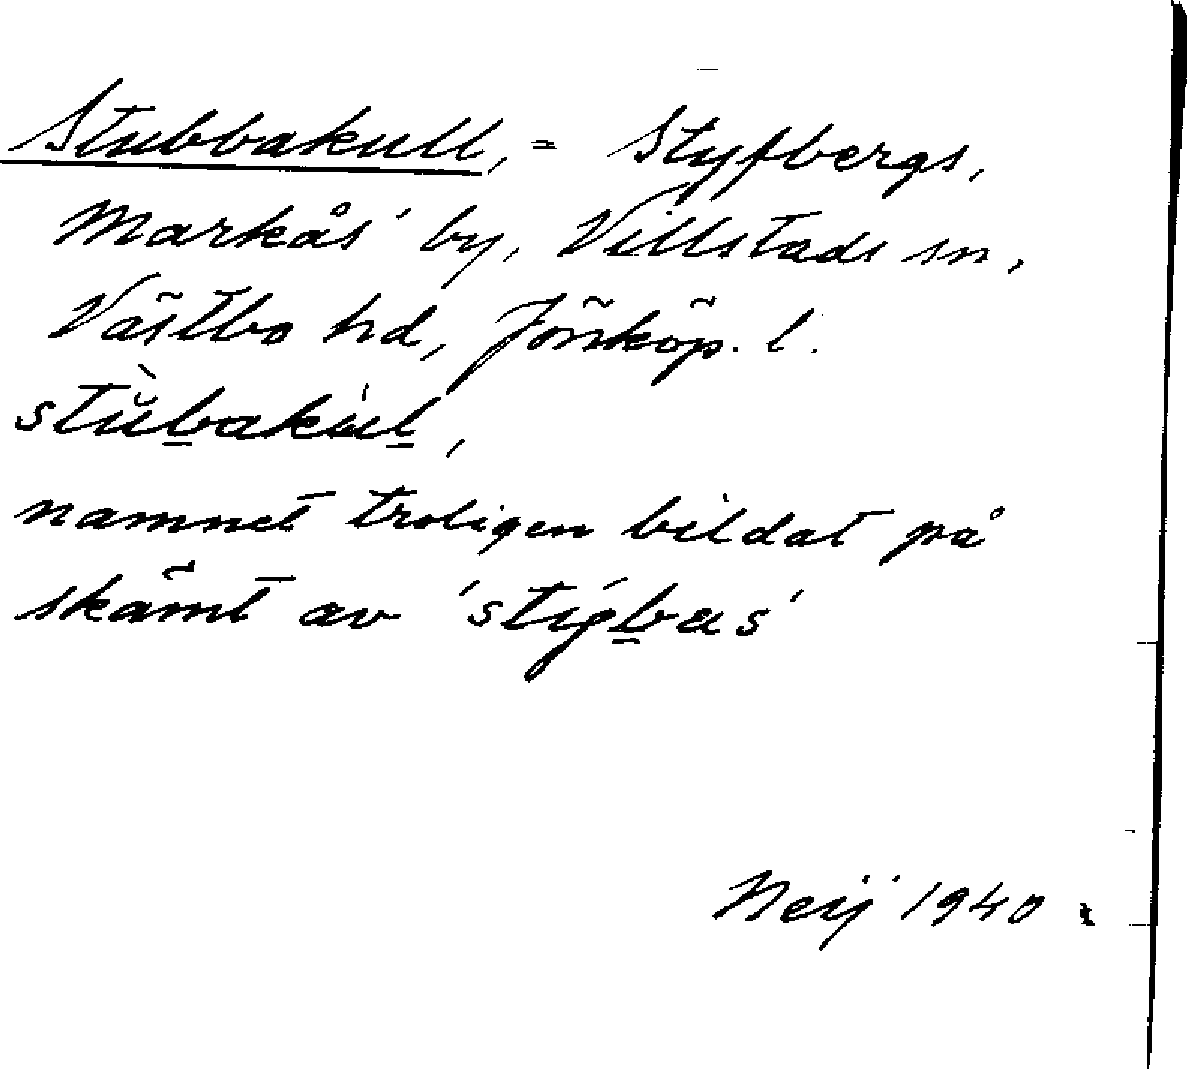 Stubbakull, = Styfbergs,
Markås' by, Villstads sn,
Västbo hd, Jönköp. l.
stu̇̀b̲akúl̲,
namnet troligen bildat på
skämt av 'stýb̲as'
Neij 1940.